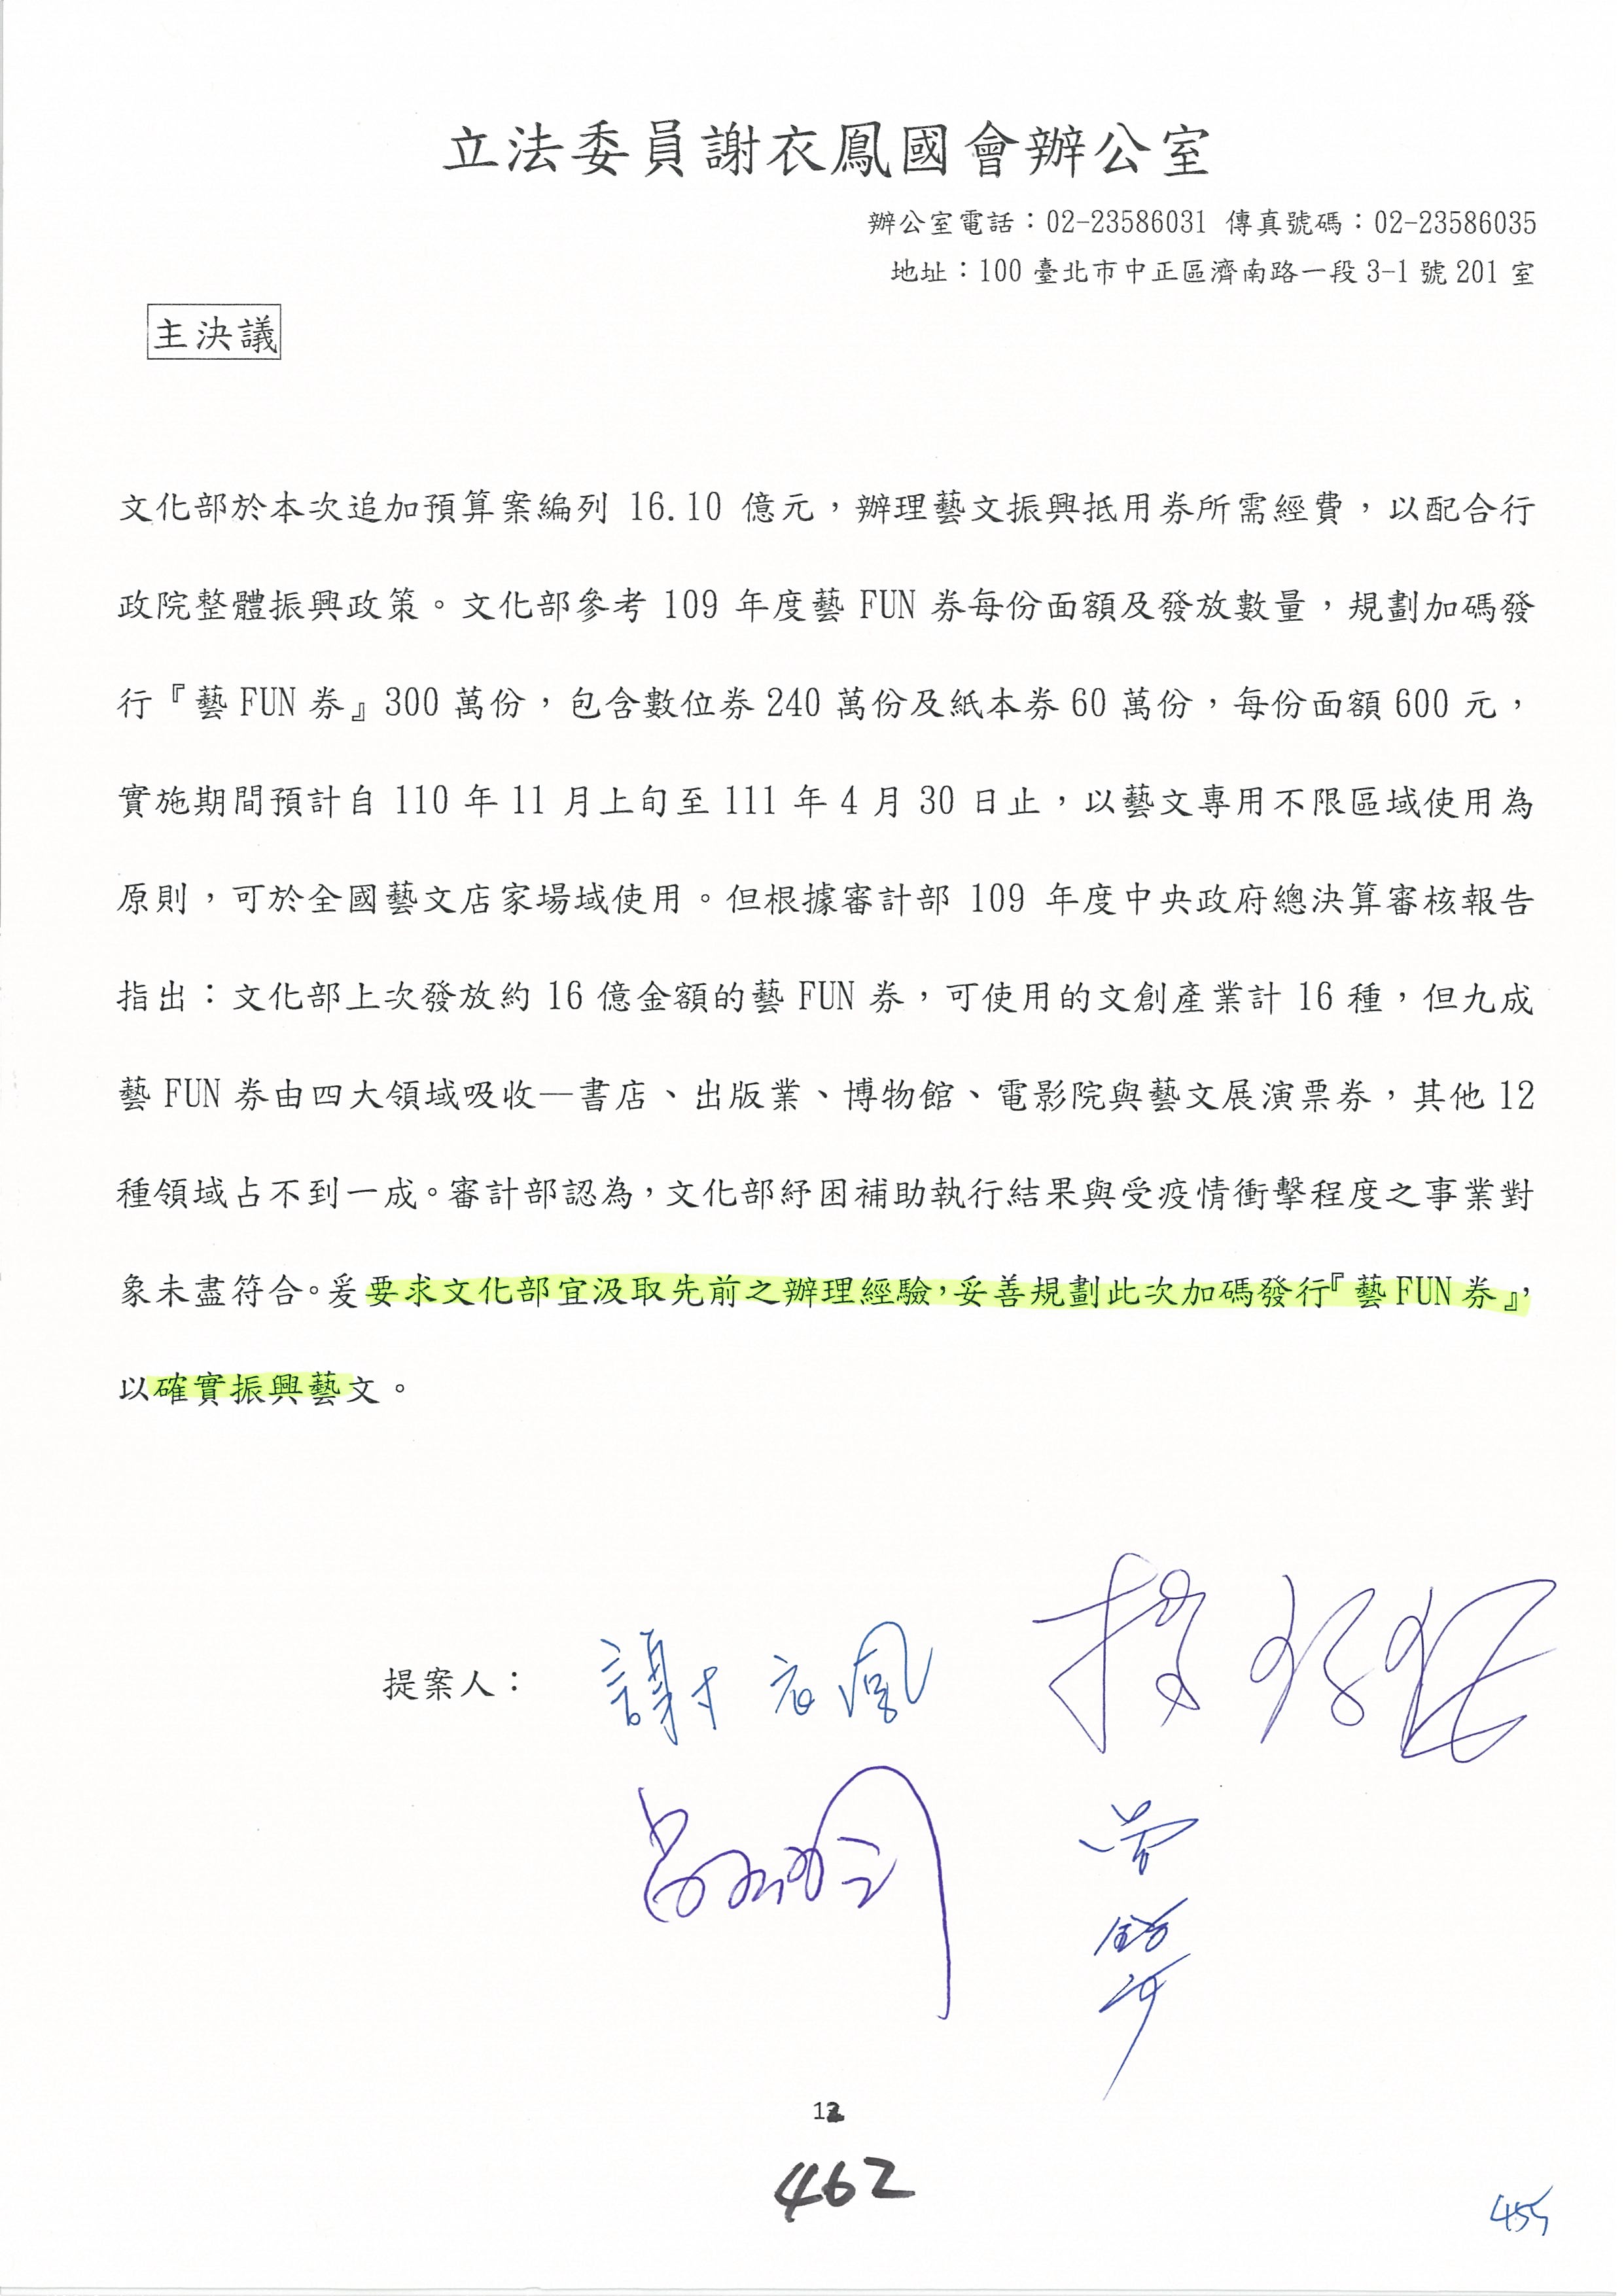 立法委員謝衣鳳國會辦公室
辦公室電話：02-23586031 傳真號碼：02-23586035
地址：100 臺北市中正區濟南路一段 3-1 號 201 室
主決議
文化部於本次追加預算案編列 16.10 億元，辦理藝文振興抵用券所需經費，以配合行
政院整體振興政策。文化部參考 109 年度藝 FUN 券每份面額及發放數量，規劃加碼發
行『藝 FUN 券』300 萬份，包含數位券 240 萬份及紙本券 60 萬份，每份面額 600 元，
實施期間預計自 110 年 11 月上旬至 111 年 4 月 30 日止，以藝文專用不限區域使用為
原則，可於全國藝文店家場域使用。但根據審計部 109 年度中央政府總決算審核報告
指出：文化部上次發放約 16 億金額的藝 FUN 券，可使用的文創產業計 16 種，但九成
藝 FUN 券由四大領域吸收—書店、出版業、博物館、電影院與藝文展演票券，其他 12
種領域占不到一成。審計部認為，文化部紓困補助執行結果與受疫情衝擊程度之事業對
象未盡符合。爰要求文化部宜汲取先前之辦理經驗，妥善規劃此次加碼發行『藝 FUN 券』，
以確實振興藝文。
提案人：
謝衣鳳
12
462
455